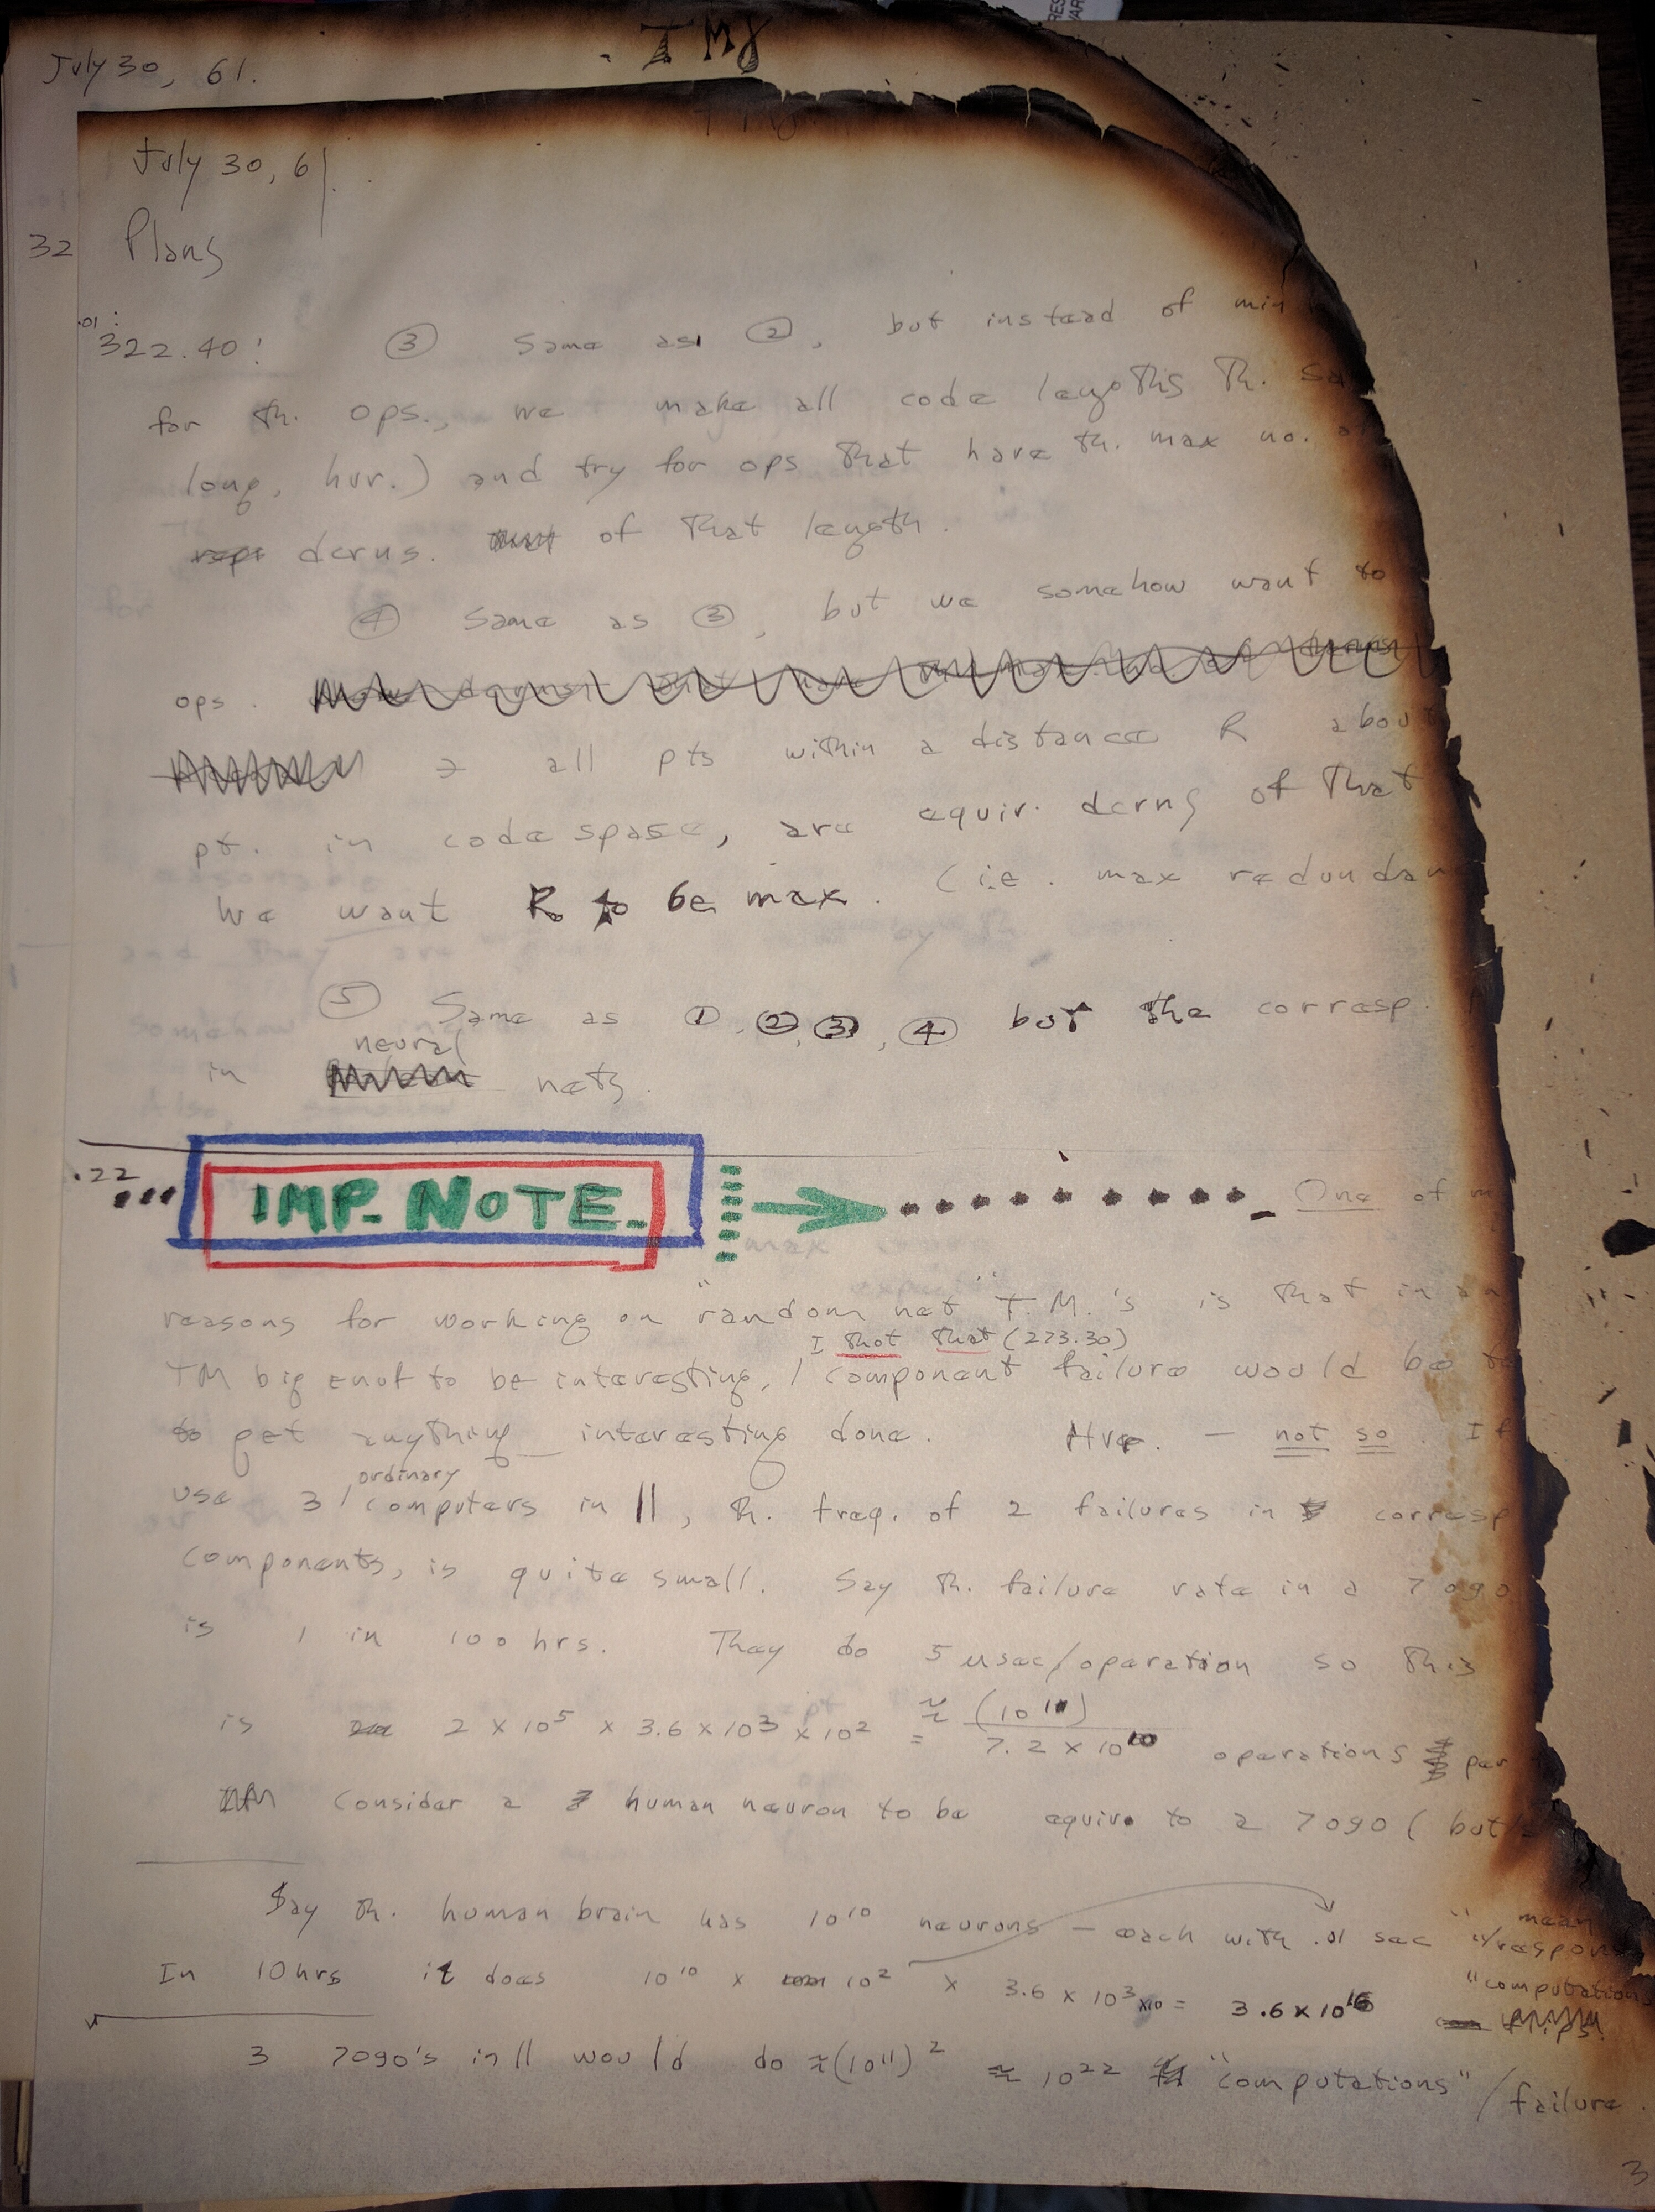 July 30, 61.
TM8
July 30, 61.
32 Plans
.01:
322.40! ③ Same as ②, but instead of min
for th. ops., we make all code lengths th.
long, hvr.) and try for ops that have th. max no.
derns. of that length.
④ Same as ③, but we somehow want to
ops.
∋ all pts within a distance R about
pt. in code space, are equiv. derns of that
We want R to be max. (i.e. max redundan
⑤ Same as ①, ②, ③, ④ but the corresp.
neural
in nets.
.22 ... IMP. NOTE. → One of
reasons for working on "random net" T.M.'s is that in
I thot that (273.30)
TM big enuf to be interesting, 1 component failure would be
to get anything interesting done. Hvr. — not so. If
ordinary
use 3 computers in ||, th. freq. of 2 failures in corresp
components, is quite small. Say th. failure rate in a 7090
is 1 in 100 hrs. They do 5 µsec/operation so this
is 2 × 10⁵ × 3.6 × 10³ × 10² = 7.2 × 10¹⁰ ≈ (10¹¹) operations per
Consider a human neuron to be equiv. to a 7090 (but
Say th. human brain has 10¹⁰ neurons — each with .01 sec "mean
respons
In 10 hrs it does 10¹⁰ × 10² × 3.6 × 10³ ×10 = 3.6 × 10¹⁶ "computations
3 7090's in || would do ≈(10¹¹)² ≈ 10²² "computations"/failure.
3